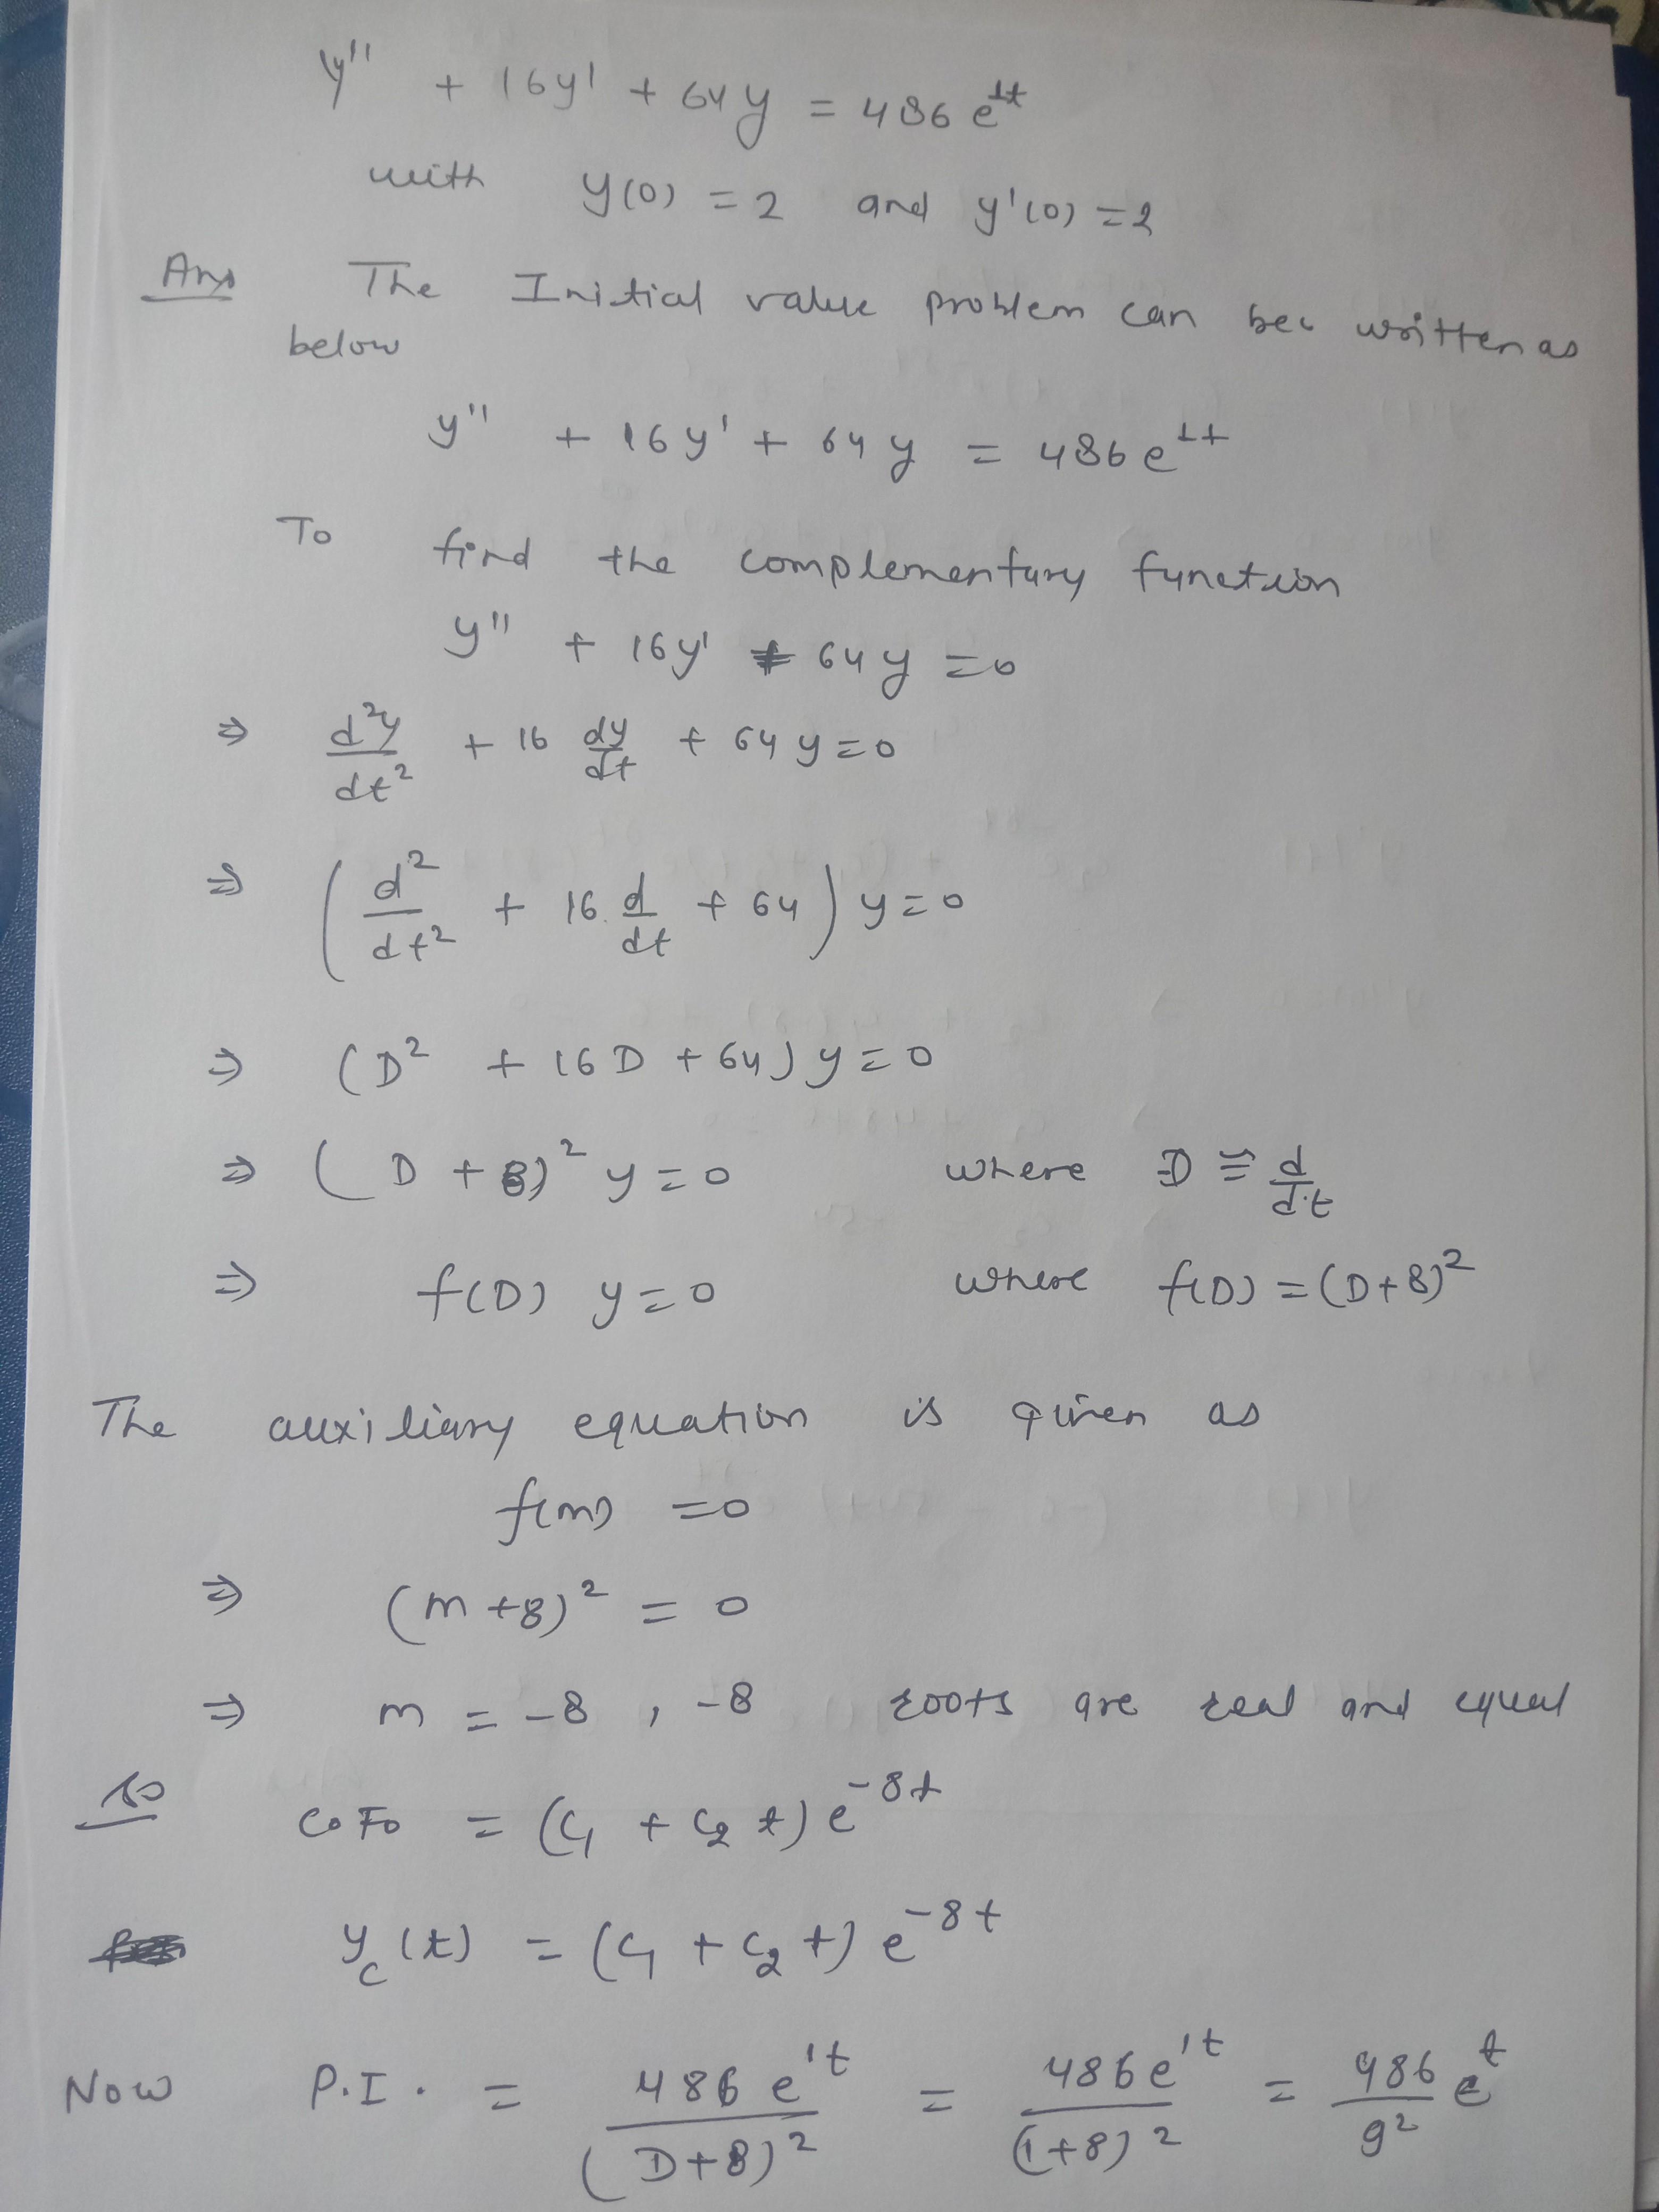 y'' + 16y' + 64y = 486 e^{1t}
with y(0) = 2 and y'(0) = 2
Ans The Initial value problem can be written as
below
y'' + 16y' + 64y = 486 e^{1t}
To find the complementary function
y'' + 16y' + 64y = 0
⇒ d²y/dt² + 16 dy/dt + 64y = 0
⇒ (d²/dt² + 16. d/dt + 64) y = 0
⇒ (D² + 16D + 64) y = 0
⇒ (D + 8)² y = 0 where D ≡ d/dt
⇒ f(D) y = 0 where f(D) = (D+8)²
The auxiliary equation is given as
f(m) = 0
⇒ (m+8)² = 0
⇒ m = -8, -8 roots are real and equal
So C.F. = (C₁ + C₂ t) e^{-8t}
y_c(t) = (C₁ + C₂ t) e^{-8t}
Now P.I. = 486 e^{1t}/(D+8)² = 486 e^{1t}/(1+8)² = 486/9² e^t